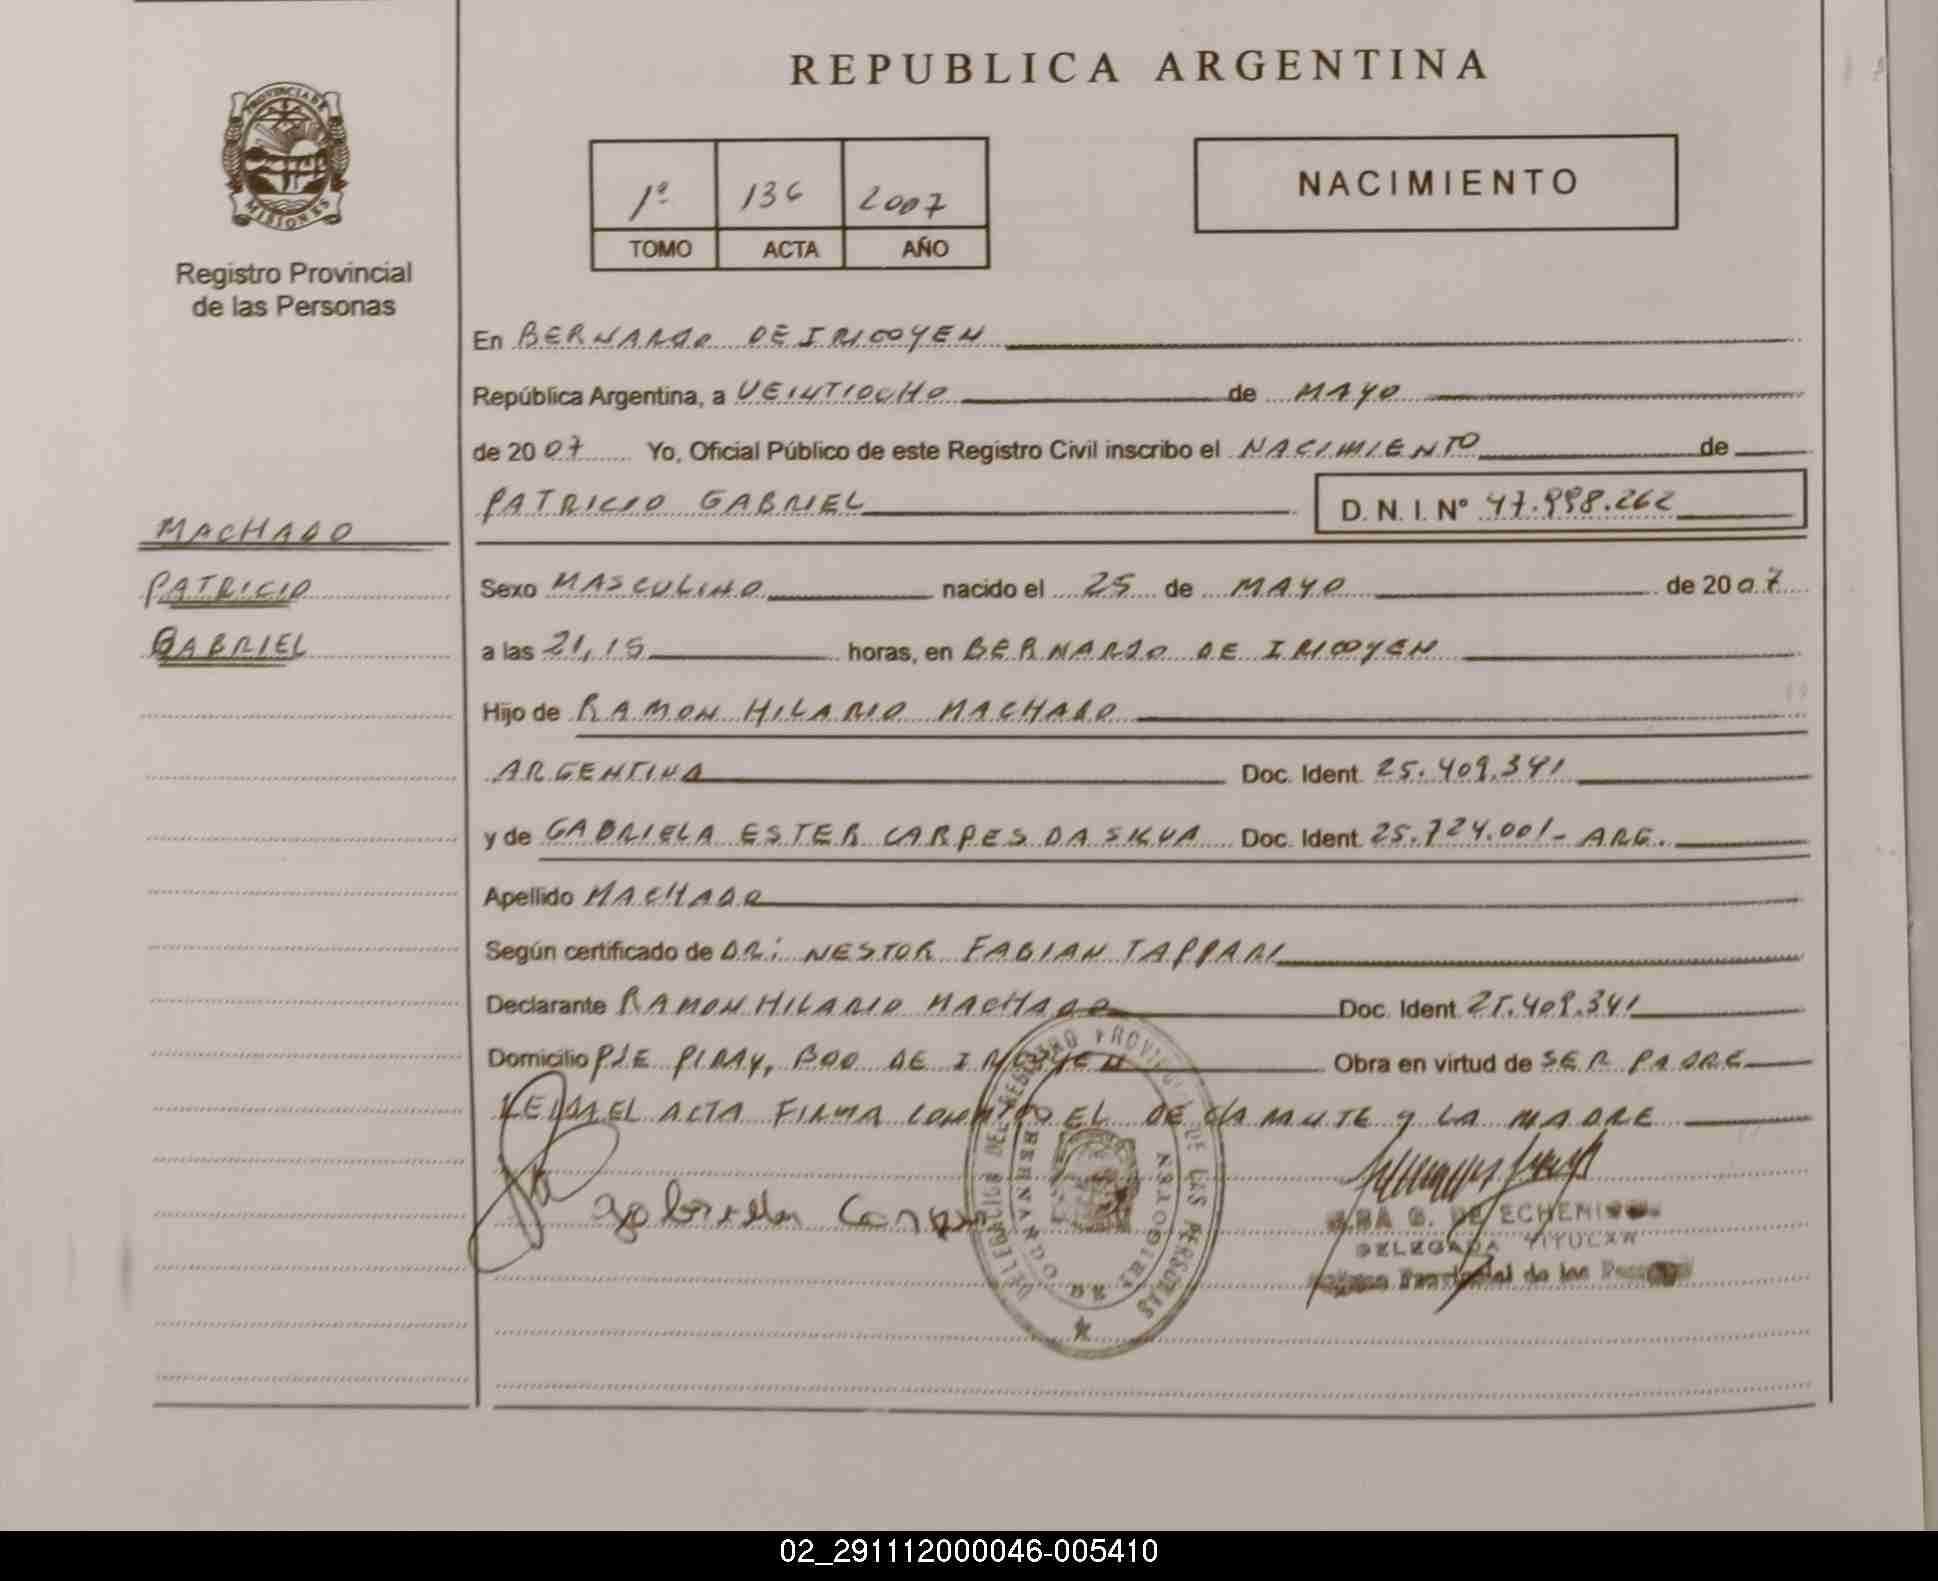 REPUBLICA ARGENTINA
PROVINCIA DE
MISIONES
Registro Provincial
de las Personas
1º 136 2007
TOMO ACTA AÑO
NACIMIENTO
En BERNARDO DE IRIGOYEN
República Argentina, a VEINTIOCHO de MAYO
de 2007 Yo, Oficial Público de este Registro Civil inscribo el NACIMIENTO de
PATRICIO GABRIEL D. N. I. Nº 47.998.262
MACHADO
PATRICIO
GABRIEL
Sexo MASCULINO nacido el 25 de MAYO de 2007
a las 21,15 horas, en BERNARDO DE IRIGOYEN
Hijo de RAMON HILARIO MACHADO
ARGENTINA Doc. Ident. 25.409.341
y de GABRIELA ESTER CARPES DA SILVA Doc. Ident. 25.724.001- ARG.
Apellido MACHADO
Según certificado de DR: NESTOR FABIAN TAPPARI
Declarante RAMON HILARIO MACHADO Doc. Ident. 25.409.341
Domicilio PJE PIRAY, BDO DE IRIGOYEN Obra en virtud de SER PADRE
LEIDA EL ACTA FIRMA CONMIGO EL DECLARANTE Y LA MADRE
gabriela Carpes
DELEGACION DEL REGISTRO PROVINCIAL DE LAS PERSONAS
BERNARDO DE IRIGOYEN
G. DE ECHENI
DELEGADA TITULAR
Provincial de las
02_291112000046-005410